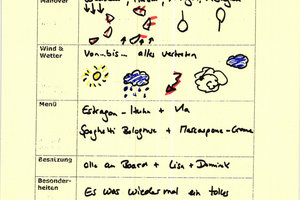 Manöver
Wind &
Wetter
Von...bis... alles vertreten
Menü
Estragon-Huhn + Vla
Spaghetti Bolognese + Mascarpone-Creme
Besatzung
alle an Board + Lisa + Dominik
Besonder-
heiten
Es war wieder mal ein tolles